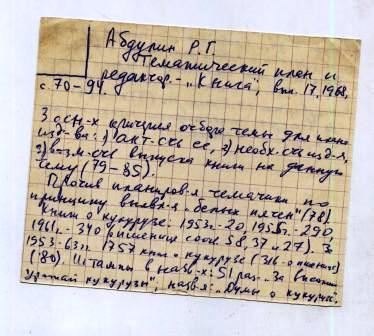 Абдулин Р.Г.
Тематический план и
редактор. – "Книга", вып. 17, 1968,
с. 70-94.
3 осн-х критерия отбора темы для плана
изд-ва: 1) акт-сть ее, 2) необх-сть изд-я,
3) в-зм-сть выпуска книги на данную
тему (79-85).
Против планиров-я тематики по
принципу выявл-я "белых пятен" (78)
Книги о кукурузе: 1953г.-20, 1955г.-290
1961г.- 340 (о пшенице соотв 58, 37 и 27). За
1953-63гг. 1757 книг о кукурузе (316-о пшенице)
(80). Штампы в назв-х: 51 раз – "За высокий
урожай кукурузы", назв-я: "Думы о кукурузе"